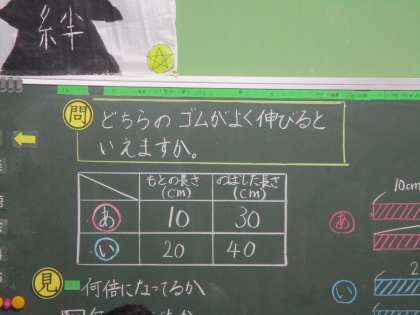 絆
問 どちらの ゴムがよく伸びると
いえますか。
もとの長さ(cm) のばした長さ(cm)
あ 10 30
い 20 40
見 何倍になってるか
10cm
あ
い